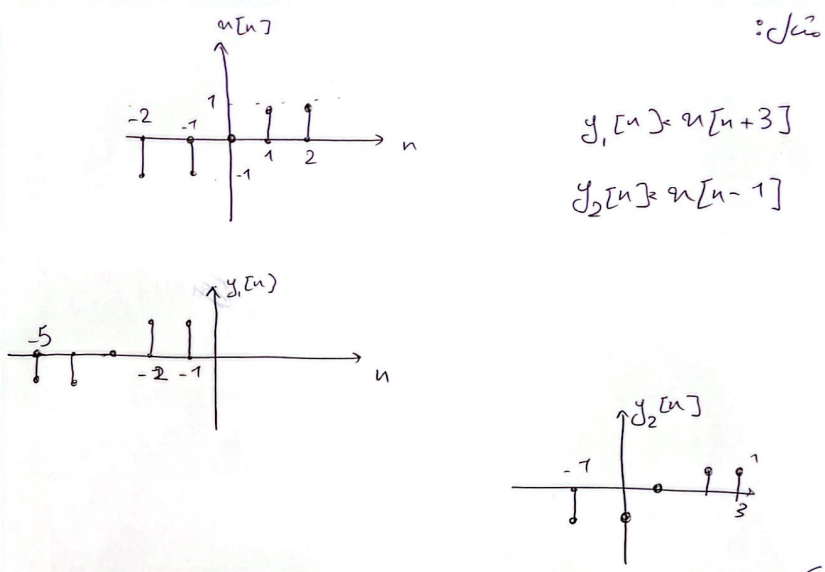 مثال:
x[n]
1
-2 -1
1 2 n
-1
y₁[n] = x[n+3]
y₂[n] = x[n-1]
y₁[n]
-5
-2 -1
n
y₂[n]
-1 1
3